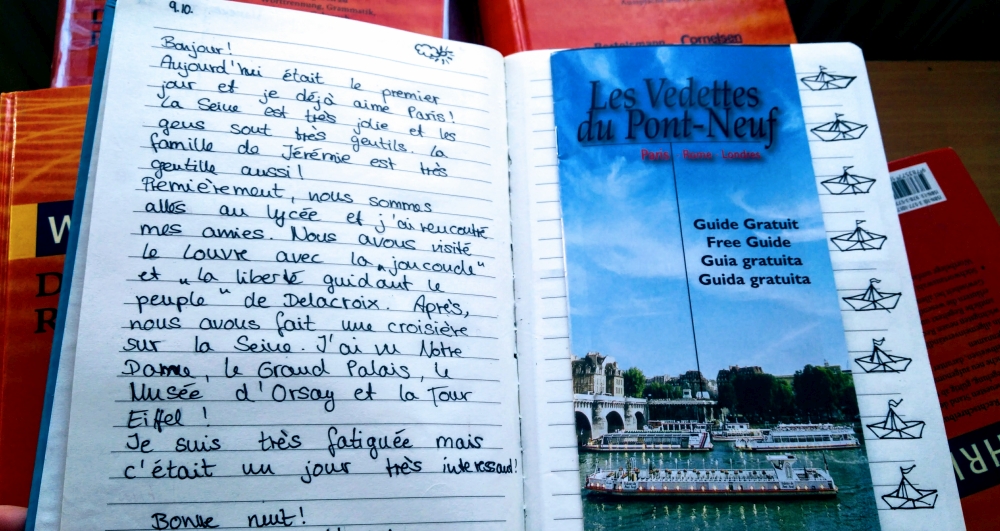 9.10.
Bonjour!
Aujourd'hui était le premier
jour et je déjà aime Paris!
La Seine est très jolie et les
gens sont très gentils. La
famille de Jérémie est très
gentille aussi!
Premièrement, nous sommes
allés au lycée et j'ai rencontré
mes amies. Nous avons visité
le Louvre avec la „jouconde"
et „la liberté guidant le
peuple" de Delacroix. Après,
nous avons fait une croisière
sur la Seine. J'ai vu Notre
Dame, le Grand Palais, le
Musée d'Orsay et la Tour
Eiffel!
Je suis très fatiguée mais
c'était un jour très interessand!
Bonne nuit!
Les Vedettes
du Pont-Neuf
Paris Rome Londres
Guide Gratuit
Free Guide
Guia gratuita
Guida gratuita
Worttrennung, Grammatik,
Bertelsmann Cornelsen
W
D
R